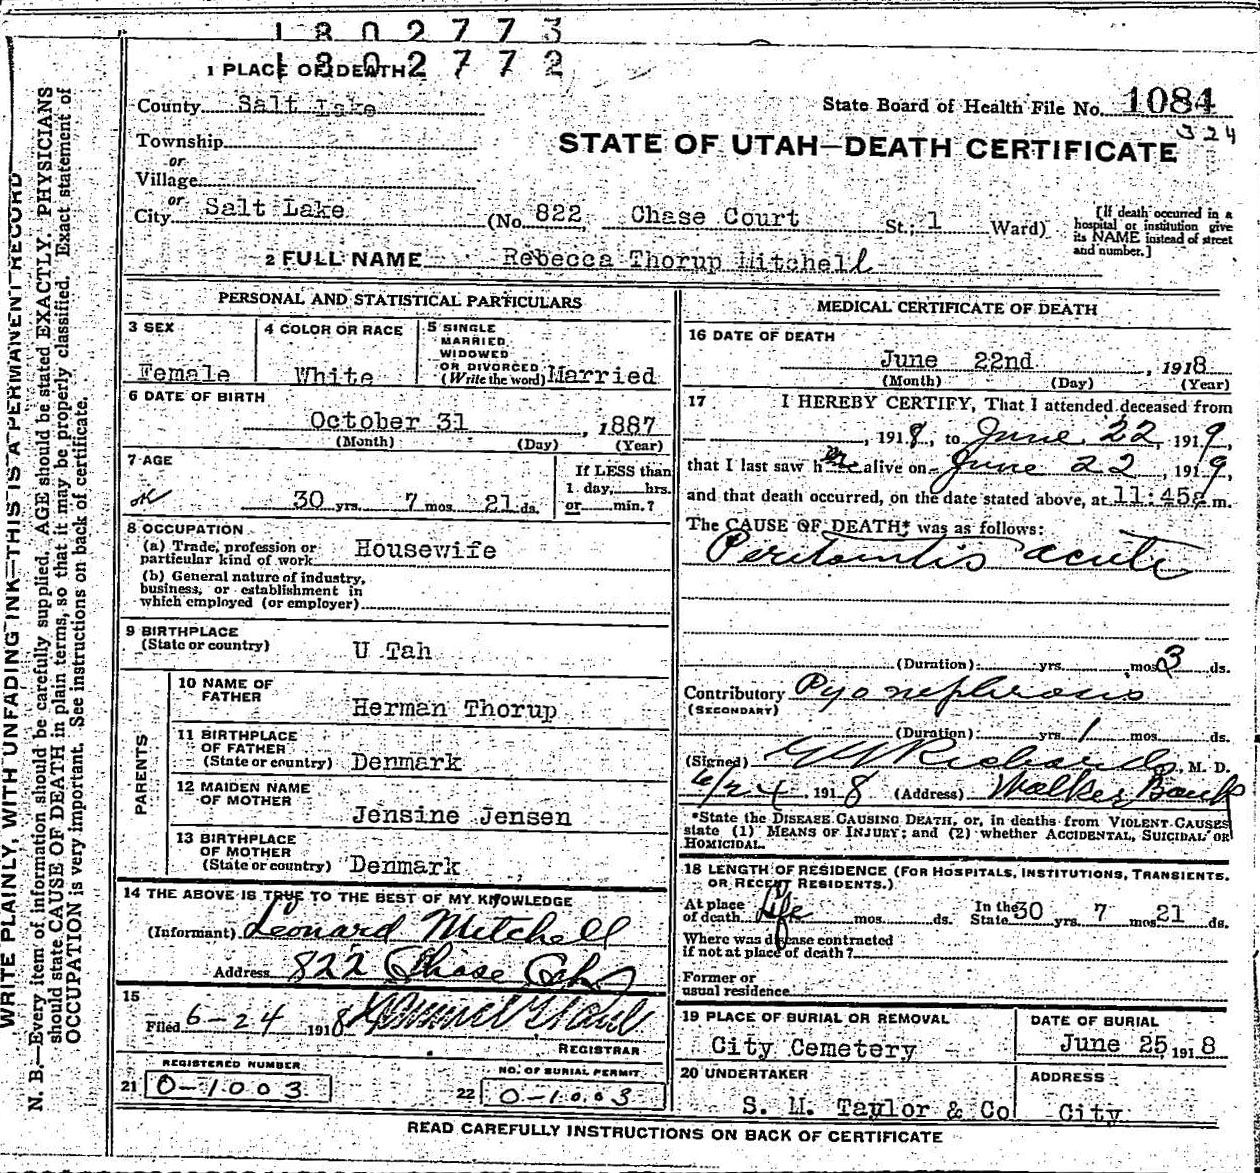 1802773
1802772
1 PLACE OF DEATH
County Salt Lake
State Board of Health File No. 1084
324
Township
or
Village
or
City Salt Lake
STATE OF UTAH—DEATH CERTIFICATE
(No. 822 Chase Court St.; 1 Ward)
[If death occurred in a hospital or institution give its NAME instead of street and number.]
2 FULL NAME Rebecca Thorup Mitchell
PERSONAL AND STATISTICAL PARTICULARS
3 SEX
Female
4 COLOR OR RACE
White
5 SINGLE
MARRIED
WIDOWED
OR DIVORCED
(Write the word) Married
6 DATE OF BIRTH
October 31, 1887
(Month) (Day) (Year)
7 AGE
30 yrs. 7 mos. 21 ds.
If LESS than
1 day, hrs.
or min.?
8 OCCUPATION
(a) Trade, profession or
particular kind of work Housewife
(b) General nature of industry,
business, or establishment in
which employed (or employer)
9 BIRTHPLACE
(State or country) U Tah
PARENTS
10 NAME OF
FATHER Herman Thorup
11 BIRTHPLACE
OF FATHER
(State or country) Denmark
12 MAIDEN NAME
OF MOTHER Jensine Jensen
13 BIRTHPLACE
OF MOTHER
(State or country) Denmark
14 THE ABOVE IS TRUE TO THE BEST OF MY KNOWLEDGE
(Informant) Leonard Mitchell
Address 822 Chase
15
Filed 6-24 1918
REGISTRAR
REGISTERED NUMBER
21 0-1003
NO. OF BURIAL PERMIT
22 0-1003
MEDICAL CERTIFICATE OF DEATH
16 DATE OF DEATH
June 22nd, 1918
(Month) (Day) (Year)
17 I HEREBY CERTIFY, That I attended deceased from
, 1918, to June 22, 1919,
that I last saw her alive on June 22, 1919,
and that death occurred, on the date stated above, at 11:45a m.
The CAUSE OF DEATH* was as follows:
Peritonitis acute
(Duration) yrs. mos. 3 ds.
Contributory Pyonephrosis
(SECONDARY)
(Duration) yrs. 1 mos. ds.
(Signed) G G Richards, M. D.
6/24, 1918 (Address) Walker Bank
*State the DISEASE CAUSING DEATH, or, in deaths from VIOLENT CAUSES
state (1) MEANS OF INJURY; and (2) whether ACCIDENTAL, SUICIDAL OR
HOMICIDAL.
18 LENGTH OF RESIDENCE (FOR HOSPITALS, INSTITUTIONS, TRANSIENTS,
OR RECENT RESIDENTS.)
At place
of death Life mos. ds.
In the
State 30 yrs. 7 mos. 21 ds.
Where was disease contracted
if not at place of death?
Former or
usual residence
19 PLACE OF BURIAL OR REMOVAL
City Cemetery
DATE OF BURIAL
June 25, 1918
20 UNDERTAKER
S. M. Taylor & Co
ADDRESS
City
READ CAREFULLY INSTRUCTIONS ON BACK OF CERTIFICATE
WRITE PLAINLY, WITH UNFADING INK—THIS IS A PERMANENT RECORD
N. B.—Every item of information should be carefully supplied. AGE should be stated EXACTLY. PHYSICIANS
should state CAUSE OF DEATH in plain terms, so that it may be properly classified. Exact statement of
OCCUPATION is very important. See instructions on back of certificate.